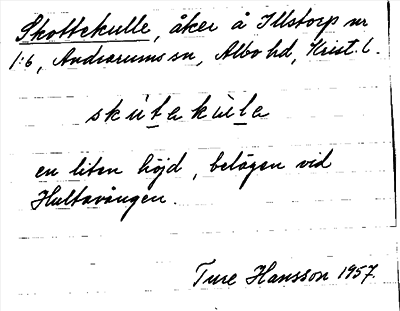 Skottekulle, åker å Illstorp nr
1:6, Andrarums sn, Albo hd, Krist. l.
skùt̲ekùl̲e
en liten höjd, belägen vid
Hultavången.
Ture Hansson 1957.